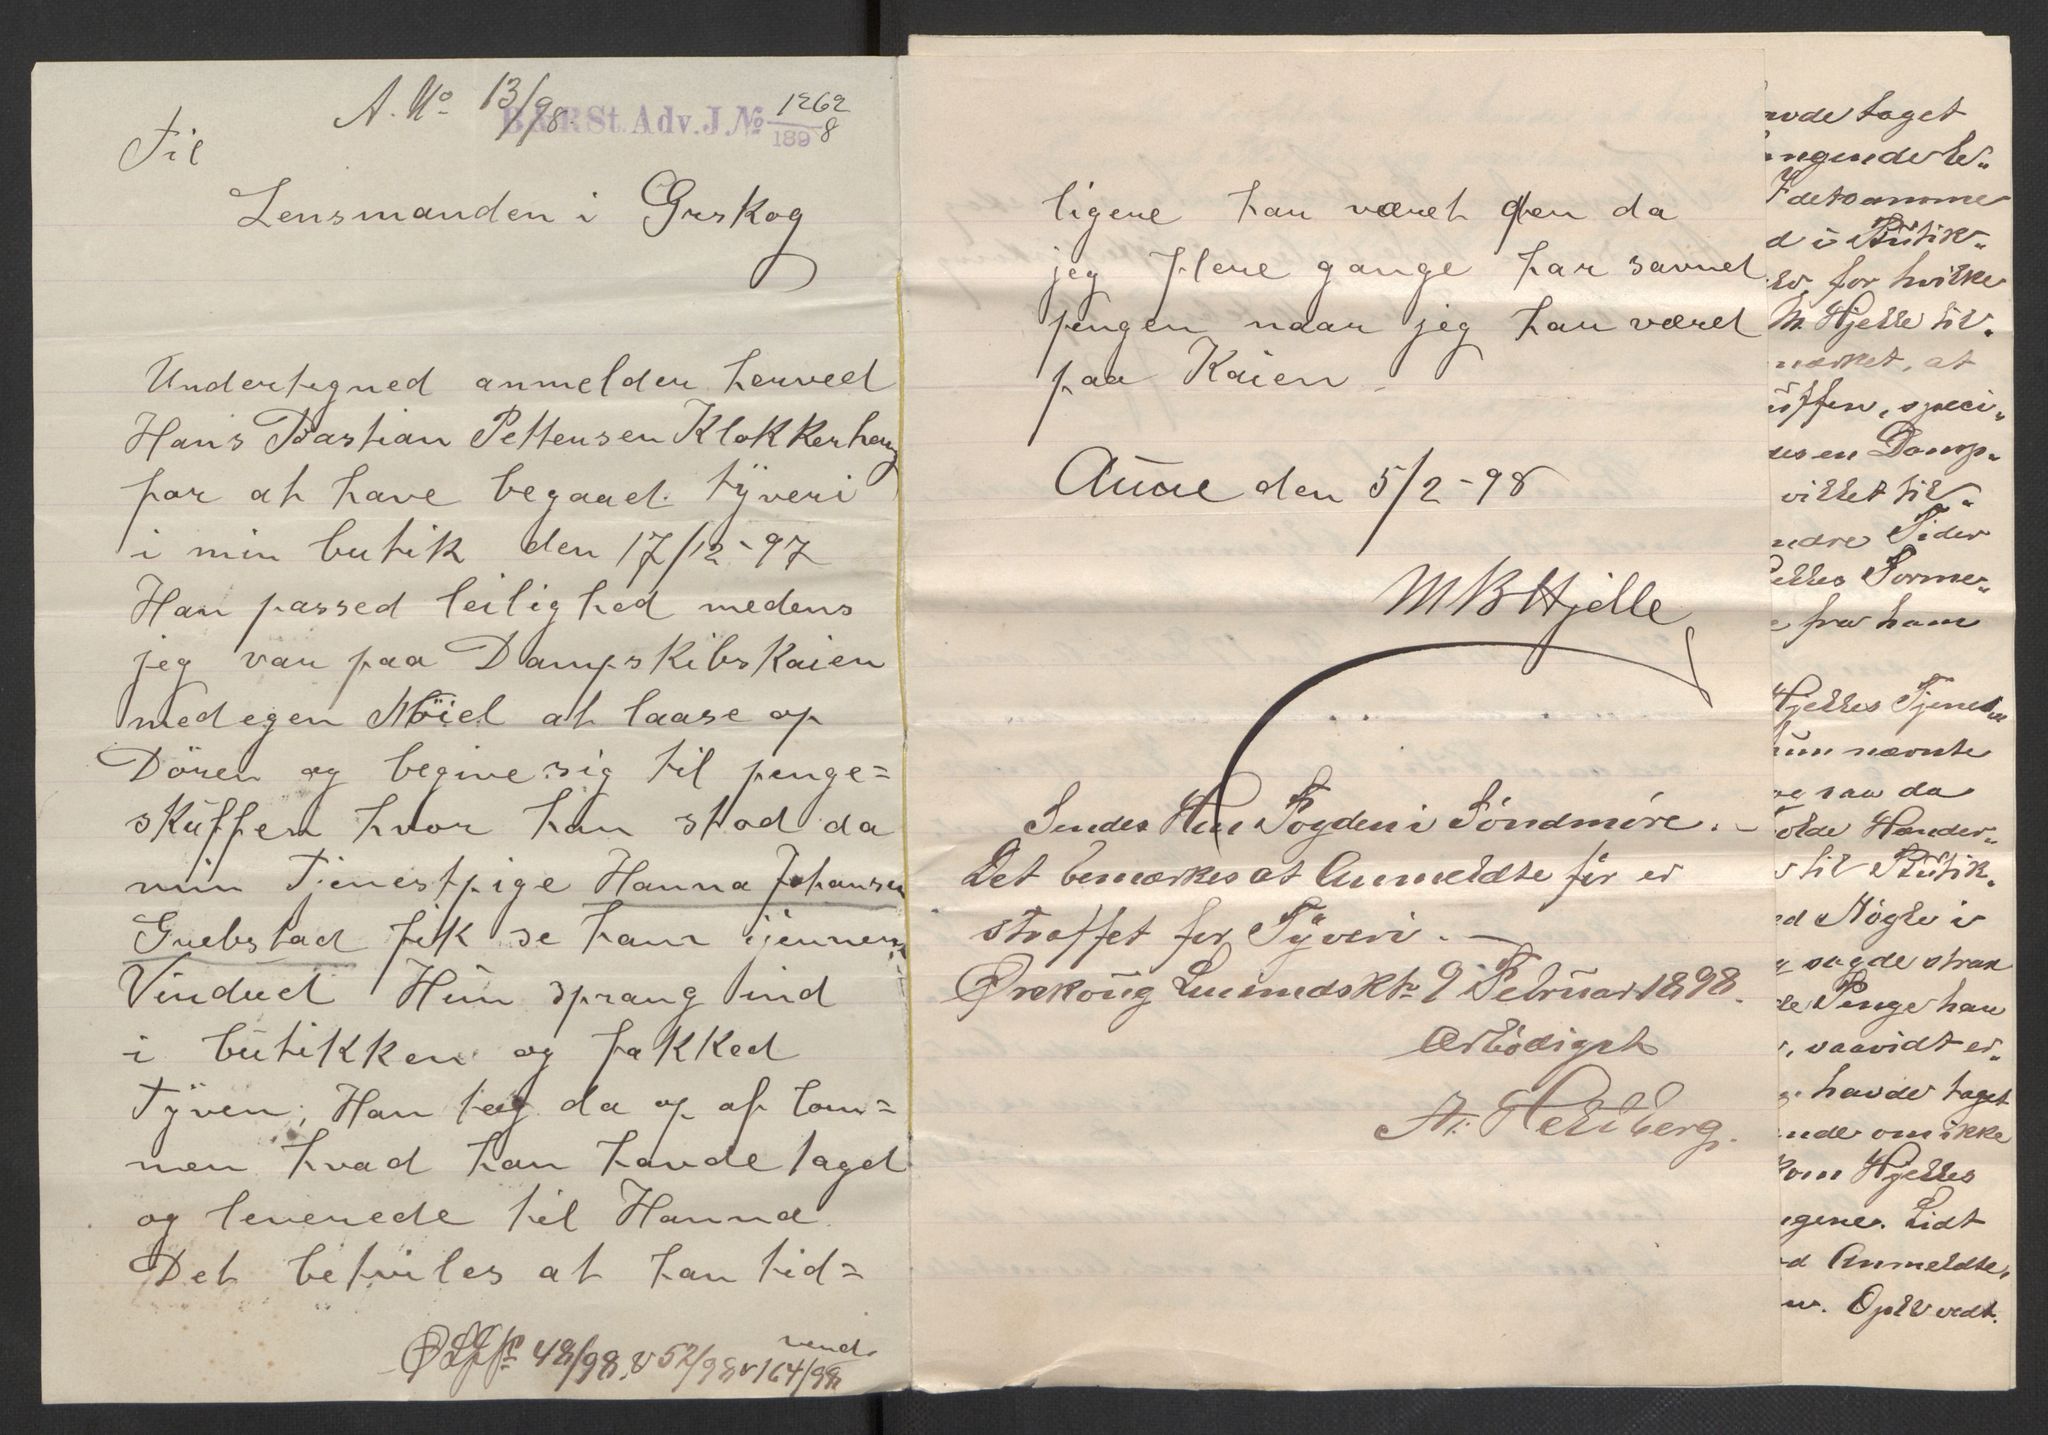 A. No 13/98.
B&R St. Adv. J. No 1262/1898
Til
Lensmanden i Ørskog
Undertegned anmelder herved
Hans Bastian Pettersen Klokkerhaug
for at have begaaed tÿveri
i min butik den 17/12-97
Han passed leilighed medens
jeg var paa Dampskibskaien
med egen Nöiel at laase op
Dören og begive sig til penge=
skuffen hvor han stod da
min Tjenestpige Hanna Johansen
Grebstad fik se ham ijennem
Vindued Hun sprang ind
i butikken og pakked
Tÿven, Han tog da op af lom=
men hvad han havde taged
og leverede til Hanna
Det betviles at han tid=
vend.
48/98, & 52/98 & 164/98
ligere har været den da
jeg flere gange har savned
pengen naar jeg har været
paa Kaien.
Aure den 5/2-98
M B Hjelle
Sendes Herr Fogden i Söndmöre. -
Det bemærkes at Anmeldte för er
straffet for Tÿveri. -
Ørskoug Lensmdskt. 9 Februar 1898.
Ærbödigst
A. Hellberg.
avde taget
ngende le„
I detsamme
d i Butik„
for hvilke
M. Hjelle til„
mærket, at
uffen, speci„
en Damp„
villet til„
ndre Tider
elles Forme„
e fra ham
Hjelles Tjenes
hun nævnte
og saa da
olde Hænder„
til Butik„
d Nögle i
sagde strax
de Penge han
, saavidt er„
havde taget
nde om ikke
kom Hjelles
ngene. Lidt
d Anmeldte„
Oplivedt.